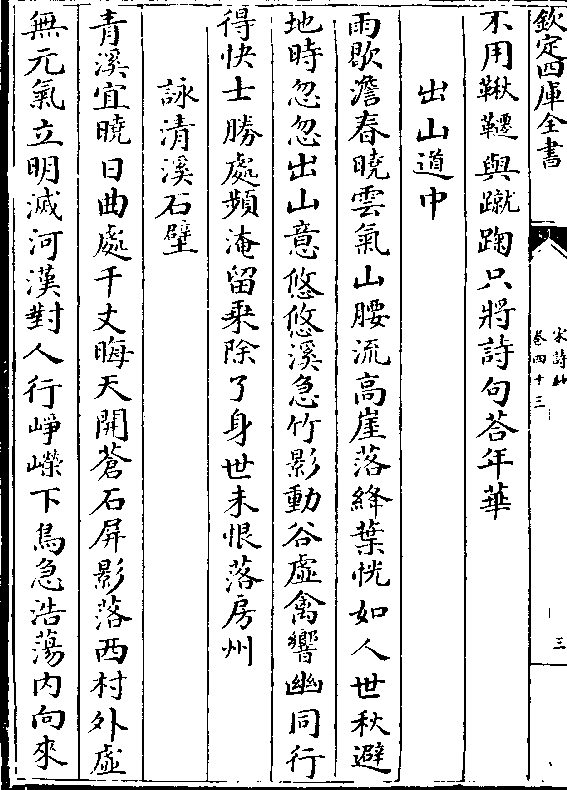 欽定四庫全書
宋詩鈔
卷四十三
三
不用鞦韆與蹴踘只將詩句荅年華
出山道中
雨歇澹春曉雲氣山腰流高崖落絳葉恍如人世秋避
地時忽忽出山意悠悠溪急竹影動谷虛禽響幽同行
得快士勝處頻淹留乗除了身世未恨落房州
詠清溪石壁
青溪宜曉日曲處千丈晦天開蒼石屏影落西村外虛
無元氣立明滅河漢對人行崢嶸下鳥急浩蕩内向來